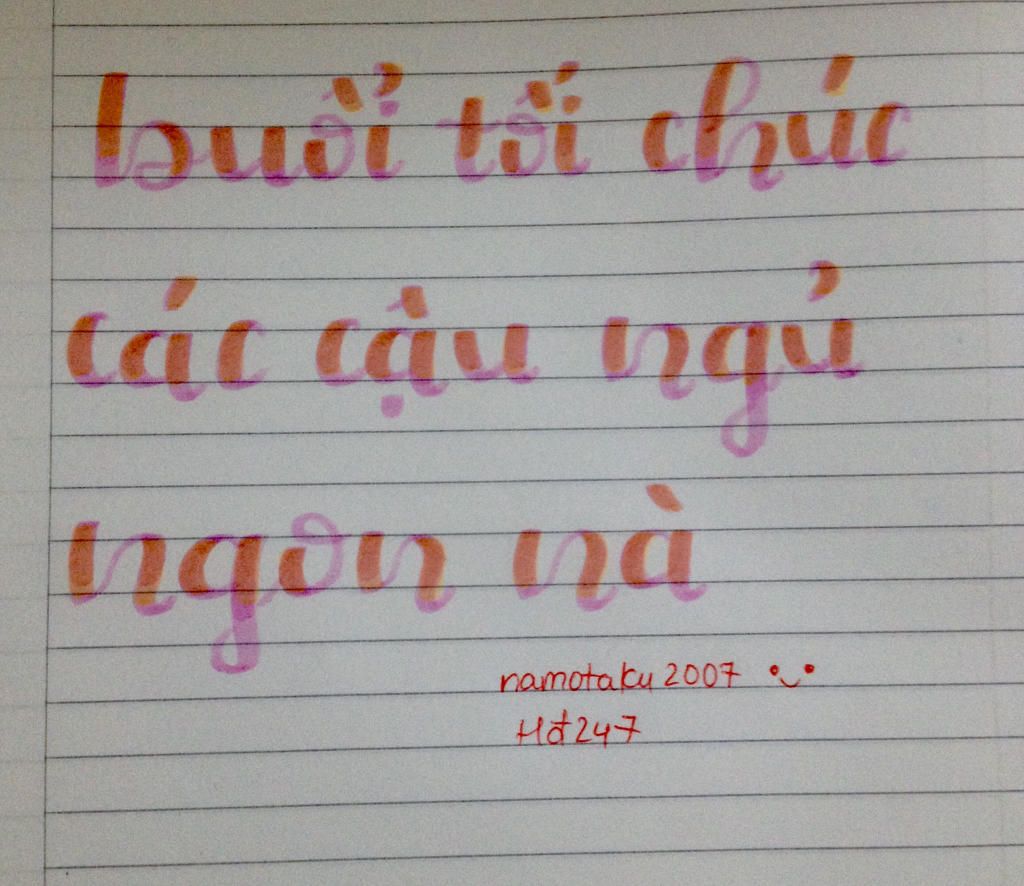 buổi tối chúc
các cậu ngủ
ngon nà
namotaku 2007
Hđ247